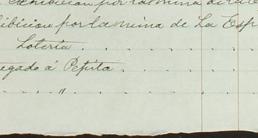 por la mina de
por la mina de La Esp
Lotería
egado á Pepita.
"